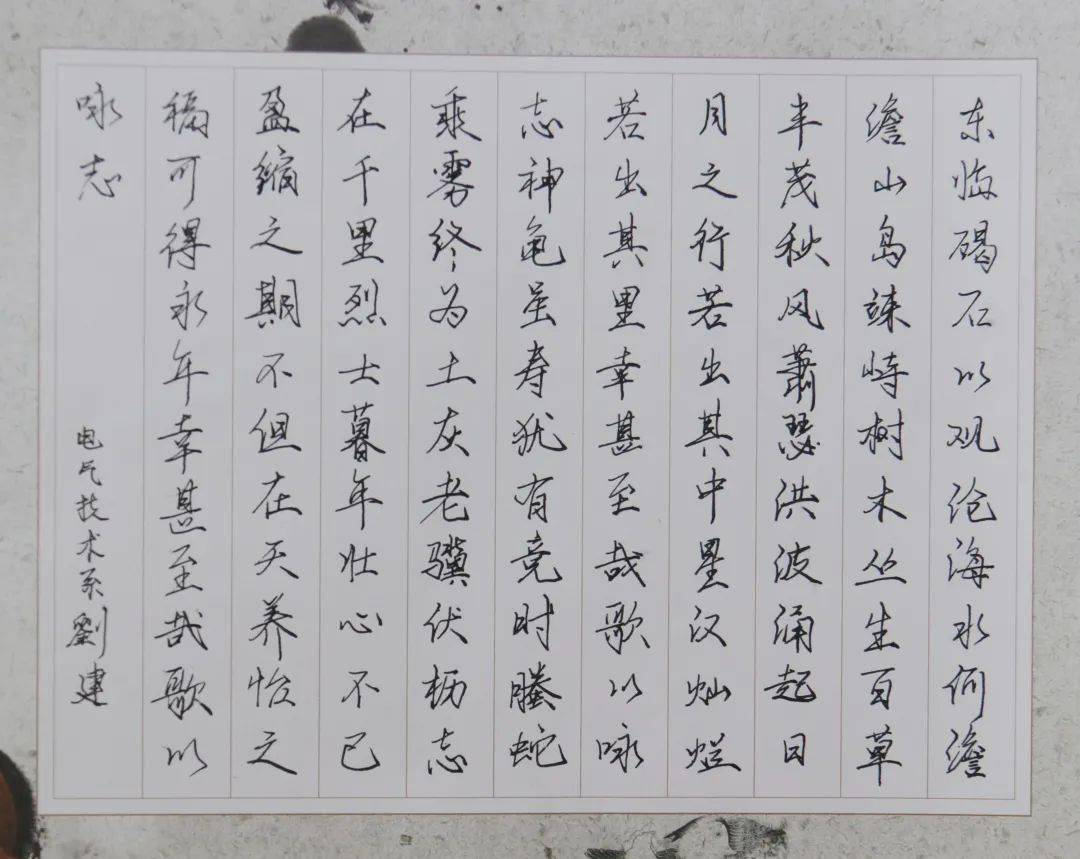 东临碣石以观沧海水何澹
澹山岛竦峙树木丛生百草
丰茂秋风萧瑟洪波涌起日
月之行若出其中星汉灿烂
若出其里幸甚至哉歌以咏
志神龟虽寿犹有竟时腾蛇
乘雾终为土灰老骥伏枥志
在千里烈士暮年壮心不已
盈缩之期不但在天养怡之
福可得永年幸甚至哉歌以
咏志
电气技术系劉建